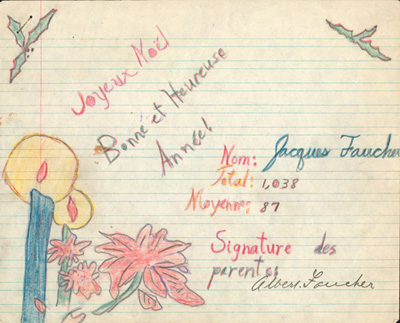 Joyeux Noël
Bonne et Heureuse
Année!
Nom: Jacques Faucher
Total: 1,038
Moyenne: 87
Signature des
parentes
Albert Faucher